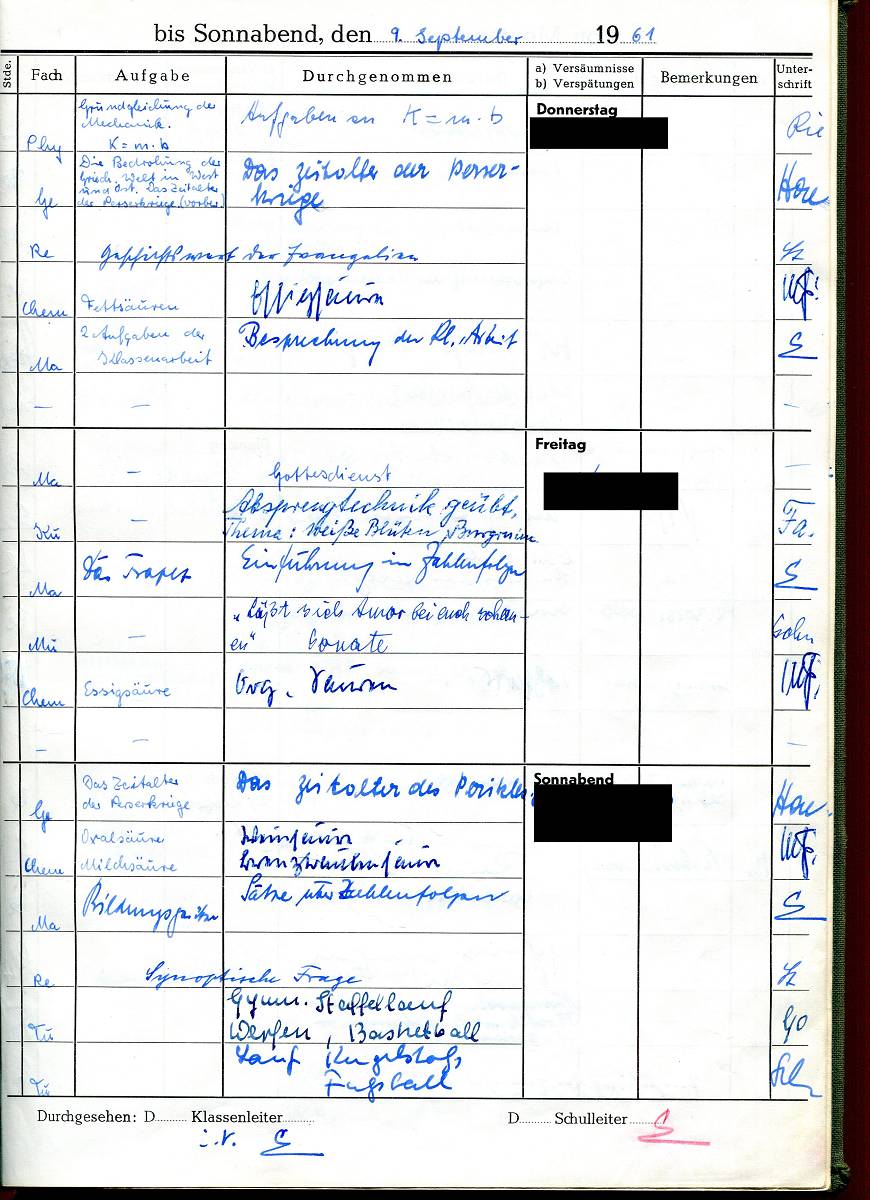 bis Sonnabend, den 9. September 1961
Stde. Fach Aufgabe Durchgenommen a) Versäumnisse b) Verspätungen Bemerkungen Unter-schrift
Donnerstag
Grundgleichung der
Mechanik.
Phy K = m · b Aufgaben zu K = m · b Rie
Die Bedrohung der
griech. Welt in West
und Ost. Das Zeitalter
der Perserkriege (vorber.)
Ge Das Zeitalter der Perser-
kriege
Re Geschichtswert der Evangelien
Chem Fettsäuren Essigsäure
2 Aufgaben der
Klassenarbeit
Ma Besprechung der Kl.-Arbeit
— — —
Freitag
Ma — Gottesdienst —
Ku — Absprengtechnik geübt,
Thema: Weiße Blüten, Burgruine Fa.
Ma Das Trapez Einführung in Zahlenfolgen
Mu — "Läßt sich Amor bei euch schau-
en" Sonate
Chem Essigsäure Org. Säuren
— — —
Sonnabend
Das Zeitalter
der Perserkriege
Ge Das Zeitalter des Perikles
Oxalsäure Weinsäure
Chem Milchsäure Brenztraubensäure
Ma Sätze über Zahlenfolgen
Re Synoptische Frage
Gymn. Staffellauf
Tu Werfen, Basketball Go
Lauf Kugelstoß
Tu Fußball
Durchgesehen: D. Klassenleiter D. Schulleiter
i.V.